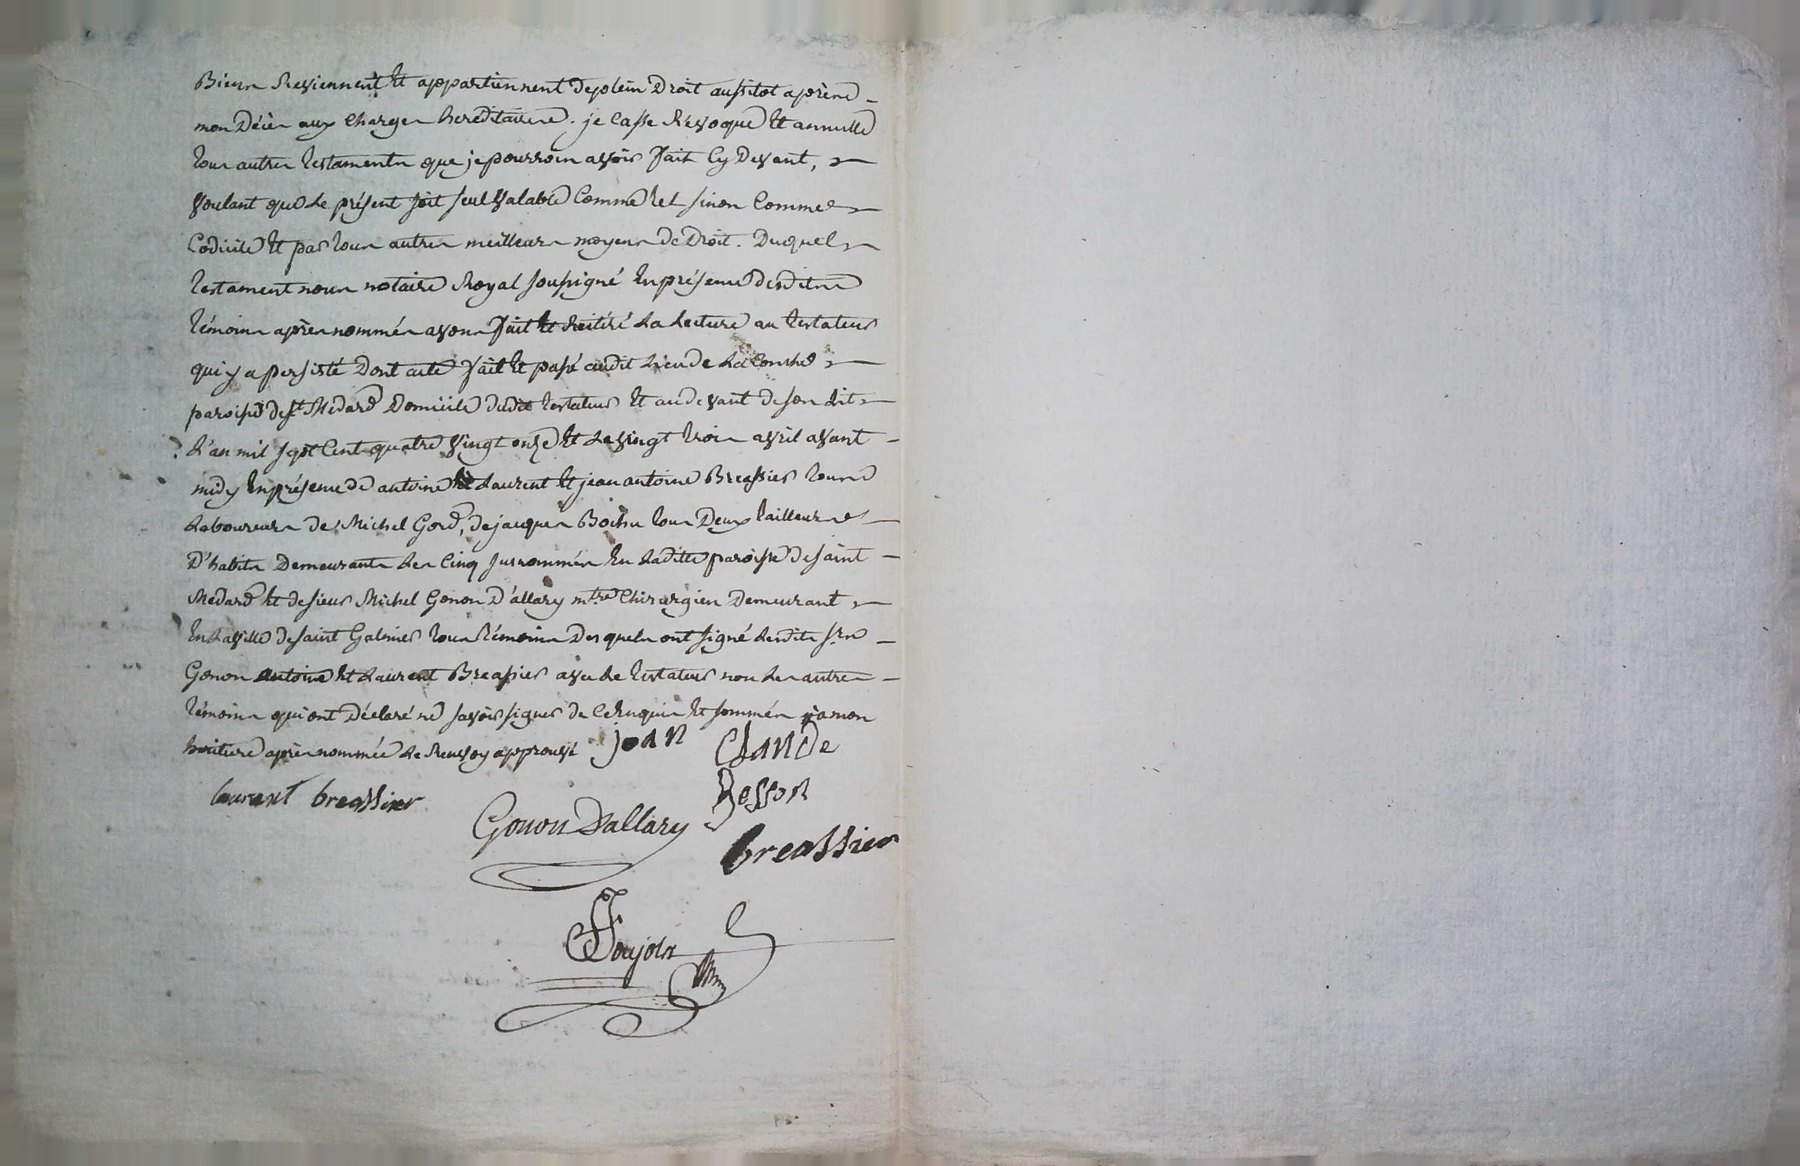 Biens Reviennent Et appartiennent deplein Droit aussitot après
mon Décès aux Charges hereditaires. je Casse Révoque Et annulle
tous autres testaments que je pourrois avoir fait Cy Devant,
voulant que Le présent soit seul valable Comme tel sinon Comme
Codicile Et par tous autres meilleurs moyens de Droit. Duquel
testament nous notaire Royal soussigné En présence desdits
témoins après nommés avons fait Et Reitéré La Lecture au testateur
qui y a persisté Dont acte fait Et passé audit Lieu de La Conche
paroisse de St Médard Domicile dudit testateur Et au devant de son Lit
L'an mil sept Cent quatre vingt onze Et Le vingt trois avril avant
midy En présence de antoine Laurent Et jean antoine Breassier tous
Laboureurs de Michel Gord, de jacques Bochu tous Deux tailleurs
D'habits Demeurants Les Cinq susnommés En Laditte paroisse de saint
Medard Et de sieur Michel Gonon D'allary mtre Chirurgien Demeurant
En La ville de saint Galmier tous témoins Desquels ont signé Lesdits srs
Gonon antoine Et Laurent Breassier avec Le testateur non Les autres
témoins qui ont Déclaré ne savoir signer de Ce Enquis Et sommés a mon
heritiere après nommée Le Renvoy approuvé
jean Claude
Besson
laurent breassier
Gonon Dallary
breassier
Poujola